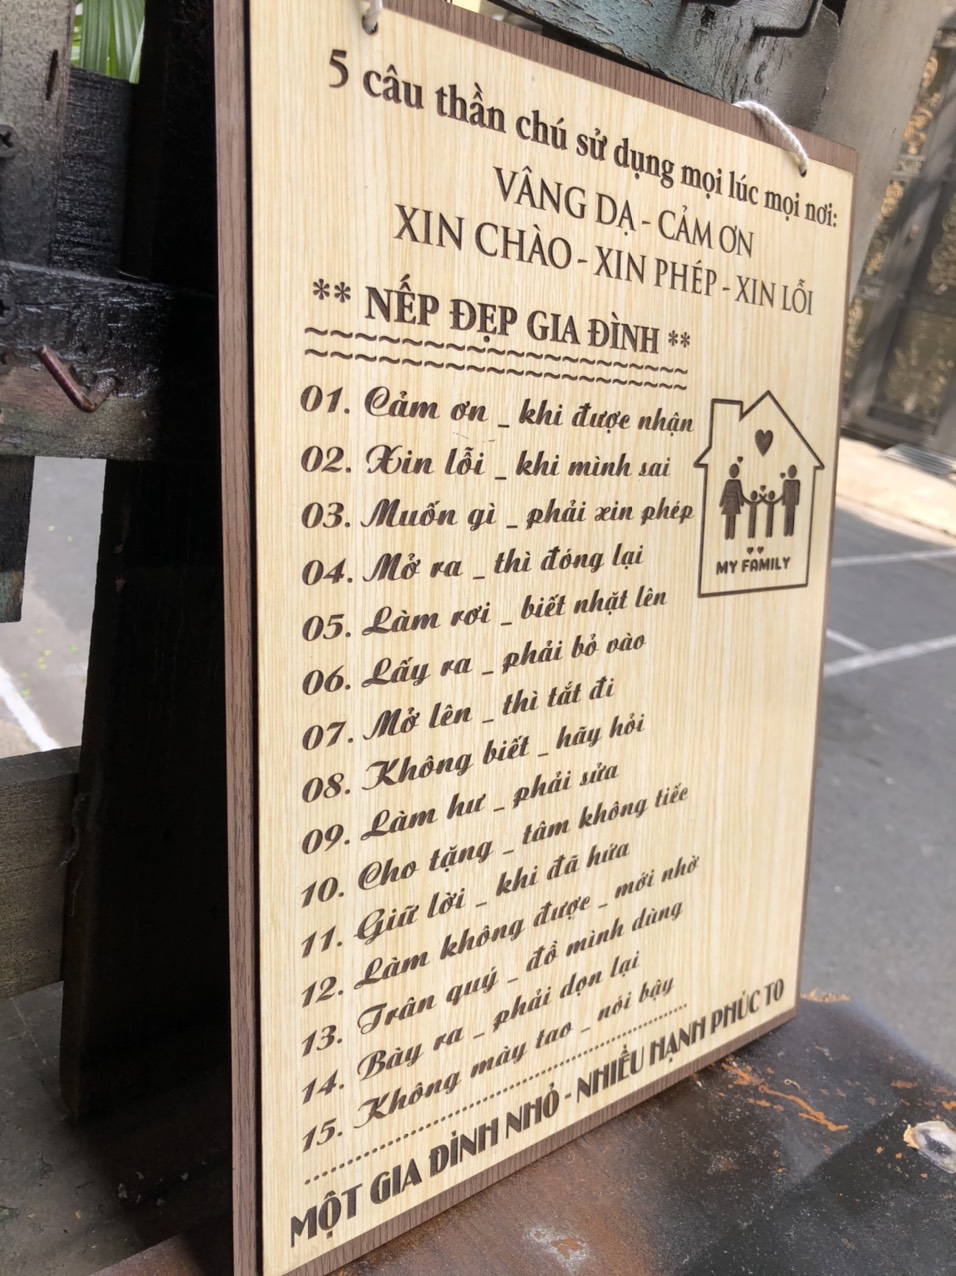 5 câu thần chú sử dụng mọi lúc mọi nơi:
VÂNG DẠ - CẢM ƠN
XIN CHÀO - XIN PHÉP - XIN LỖI
** NẾP ĐẸP GIA ĐÌNH **
~~~~~~~~~~~~~~~~~~~~
~~~~~~~~~~~~~~~~~~~~
01. Cảm ơn _ khi được nhận
02. Xin lỗi _ khi mình sai
03. Muốn gì _ phải xin phép
04. Mở ra _ thì đóng lại
05. Làm rơi _ biết nhặt lên
06. Lấy ra _ phải bỏ vào
07. Mở lên _ thì tắt đi
08. Không biết _ hãy hỏi
09. Làm hư _ phải sửa
10. Cho tặng _ tâm không tiếc
11. Giữ lời _ khi đã hứa
12. Làm không được _ mới nhờ
13. Trân quý _ đồ mình dùng
14. Bày ra _ phải dọn lại
15. Không mày tao _ nói bậy
MỘT GIA ĐÌNH NHỎ - NHIỀU HẠNH PHÚC TO
MY FAMILY